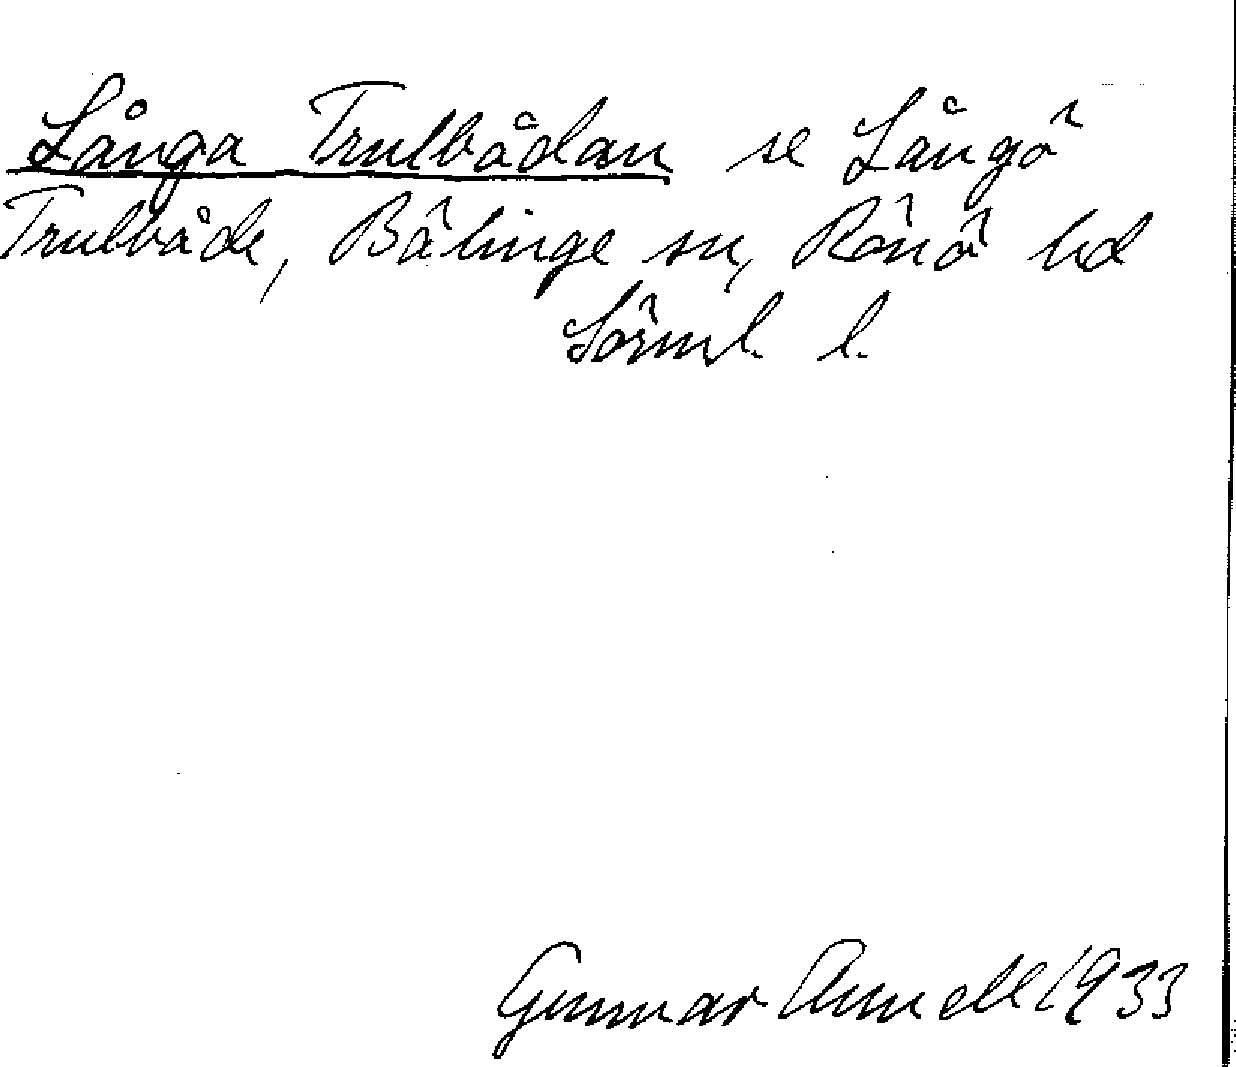 Långa Trulbådan se Långö
Trulbåde, Bälinge sn, Rönö hd
Sörml. l.
Gunnar Arnell 1933